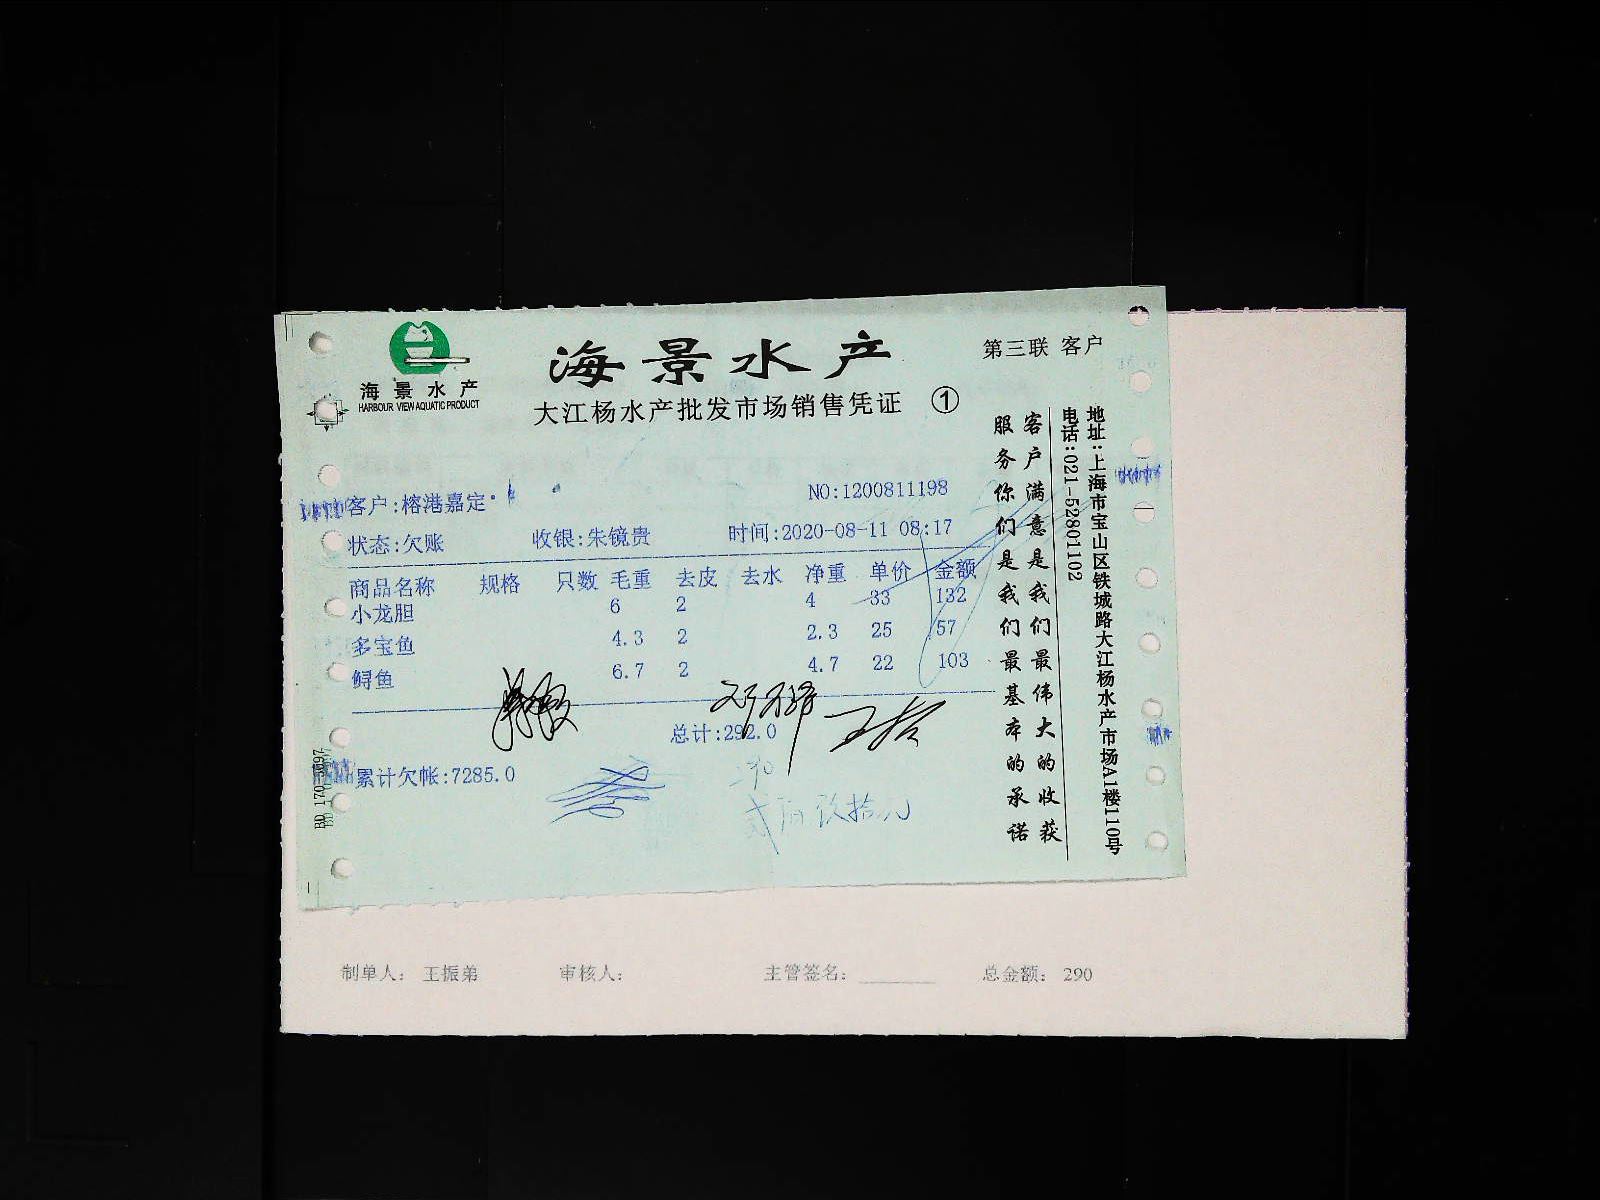 海景水产
HARBOUR VIEW AQUATIC PRODUCT
海景水产
大江杨水产批发市场销售凭证 ①
第三联 客户
客户:榕港嘉定
NO:1200811198
状态:欠账 收银:朱镜贵 时间:2020-08-11 08:17
商品名称 规格 只数 毛重 去皮 去水 净重 单价 金额
小龙胆 6 2 4 33 132
多宝鱼 4.3 2 2.3 25 57
鲟鱼 6.7 2 4.7 22 103
总计:292.0
累计欠帐:7285.0
客户满意是我们最伟大的收获
服务你们是我们最基本的承诺
地址:上海市宝山区铁城路大江杨水产市场A1楼110号
电话:021-52801102
制单人: 王振弟 审核人: 主管签名: 总金额: 290